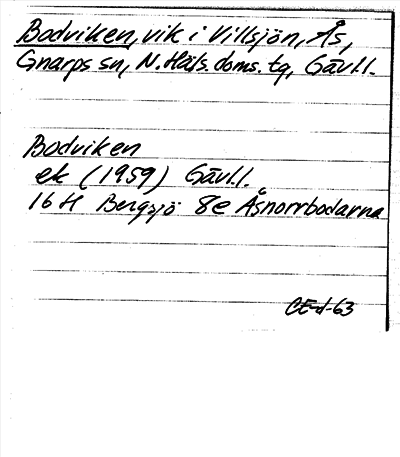 Bodviken, vik i Villsjön, Ås,
Gnarps sn, N. Häls. doms. tg, Gävl.l.
Bodviken
ek (1959) Gävl.l.
16 H Bergsjö 8e Åsnorrbodarna
CE-d-63